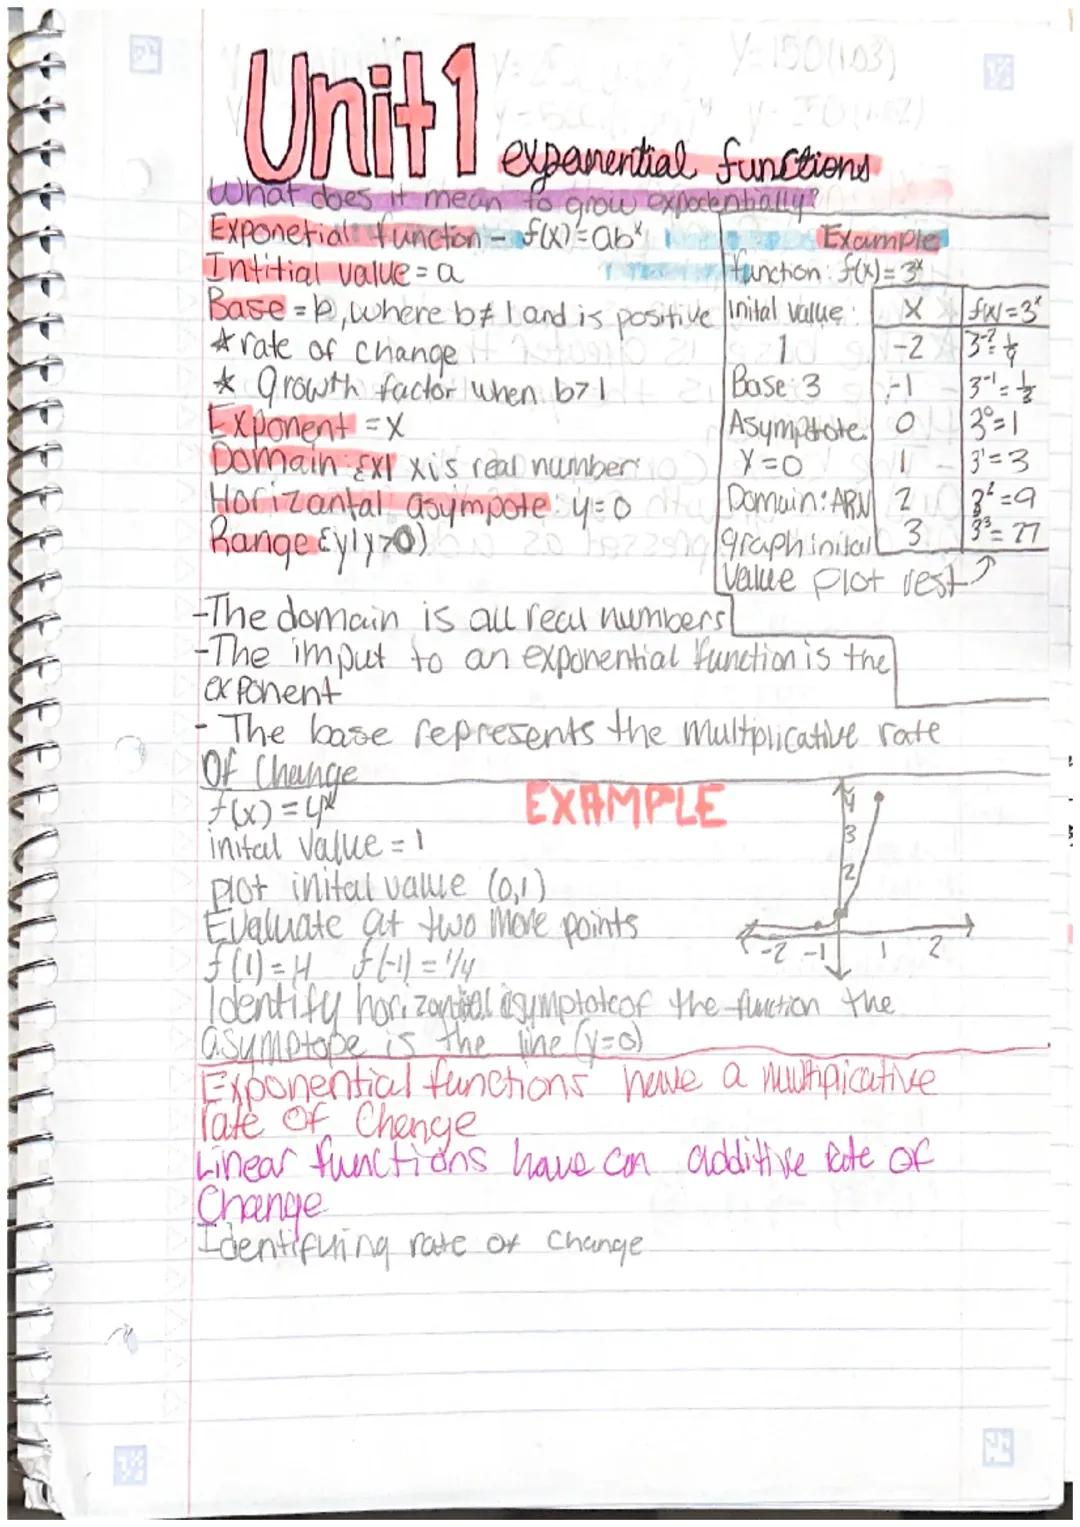 Unit 1 expenential functions
What does it mean to grow expodentially?
Exponetial function - f(x)=ab^x
Intitial value = a
Base = b, where b≠1 and is positive
* rate of change
* growth factor when b>1
Exponent = x
Domain {x| x is real number
Horizantal asympote: y=0
Range {y|y>0)
Example
function: f(x)=3^x
Inital value:
1
Base: 3
Asymptote
y=0
Domain: ARN
graph inital
value plot rest
x f(x)=3^x
-2 3^-2 = 1/9
-1 3^-1 = 1/3
0 3^0=1
1 3^1=3
2 3^2=9
3 3^3=27
-The domain is all real numbers
-The imput to an exponential function is the
exponent
- The base represents the multplicative rate
Of Change
EXAMPLE
f(x) = 4^x
inital value = 1
plot inital value (0,1)
Evaluate at two more points
f(1)=4 f(-1) = 1/4
Identify horizontial asymptote of the function the
asymptope is the line (y=0)
4
3
2
-2 -1 1 2
Exponential functions have a multiplicative
rate of Change
Linear functions have an additive Rate of
Change
Identifying rate of Change